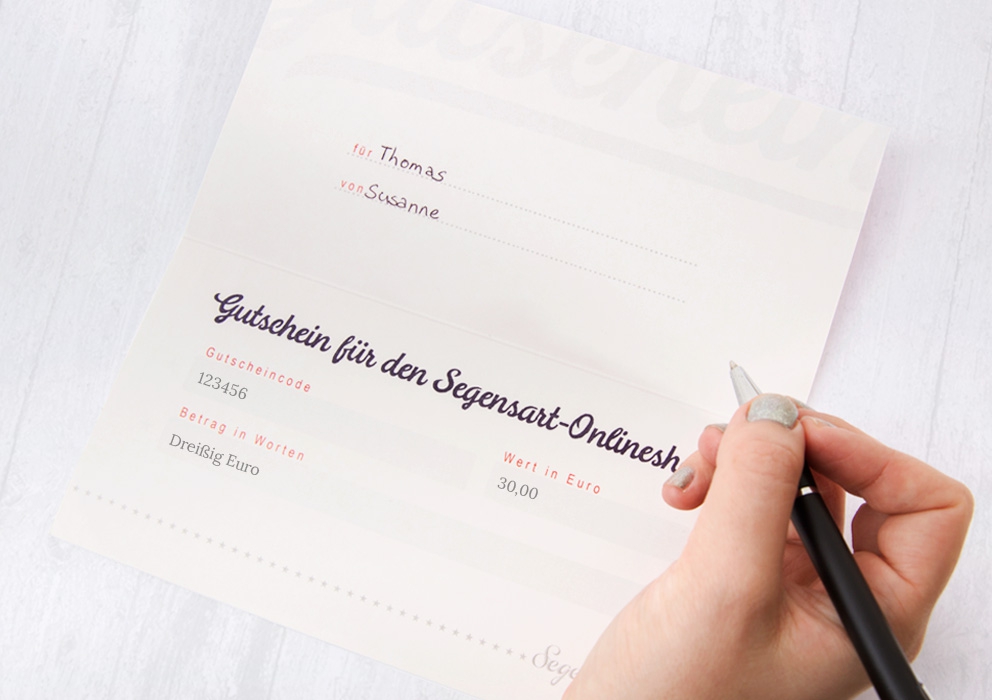 für Thomas
von Susanne
Gutschein für den Segensart-Onlinesh
Gutscheincode
123456
Betrag in Worten
Dreißig Euro
Wert in Euro
30,00